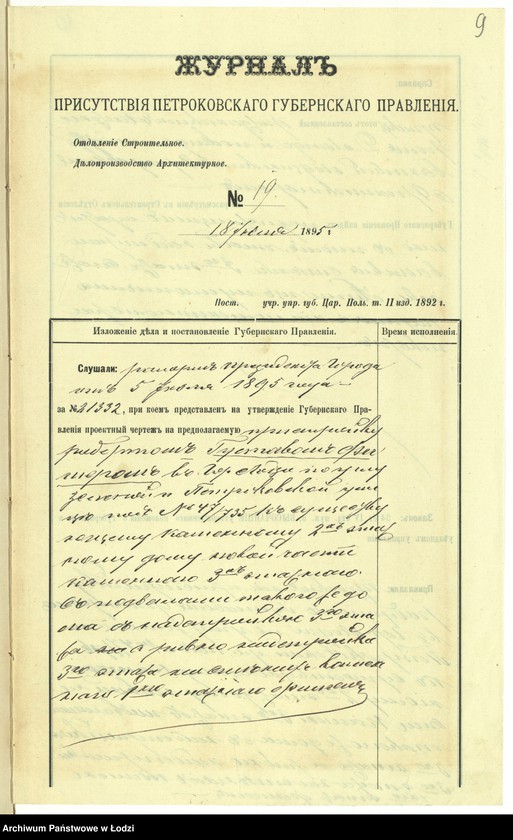 9
ЖУРНАЛЪ
ПРИСУТСТВІЯ ПЕТРОКОВСКАГО ГУБЕРНСКАГО ПРАВЛЕНІЯ.
Отдѣленіе Строительное.
Дѣлопроизводство Архитектурное.
№ 19.
18 Іюля 1895 г
Пост. учр. упр. губ. Цар. Поль. т. II изд. 1892 г.
Изложеніе дѣла и постановленіе Губернскаго Правленія.
Время исполненія.
Слушали: рапортъ Президента Города
отъ 5 Іюля 1895 года
за №21332, при коемъ представленъ на утвержденіе Губернскаго Пра-
вленія проектный чертежъ на предполагаемую пристройку
Густавомъ
въ Гор. Лодзи по углу
и Петроковской ули
цъ подъ № 47/735 къ существу
ющему каменному 2хъ этаж
ному дому новой части
каменнаго 3хъ этажнаго
съ подвалами такого же до
ма съ надстройкою 3го эта
жа а равно надстройка
3го этажа
наго этажнаго флигеля
Archiwum Państwowe w Łodzi